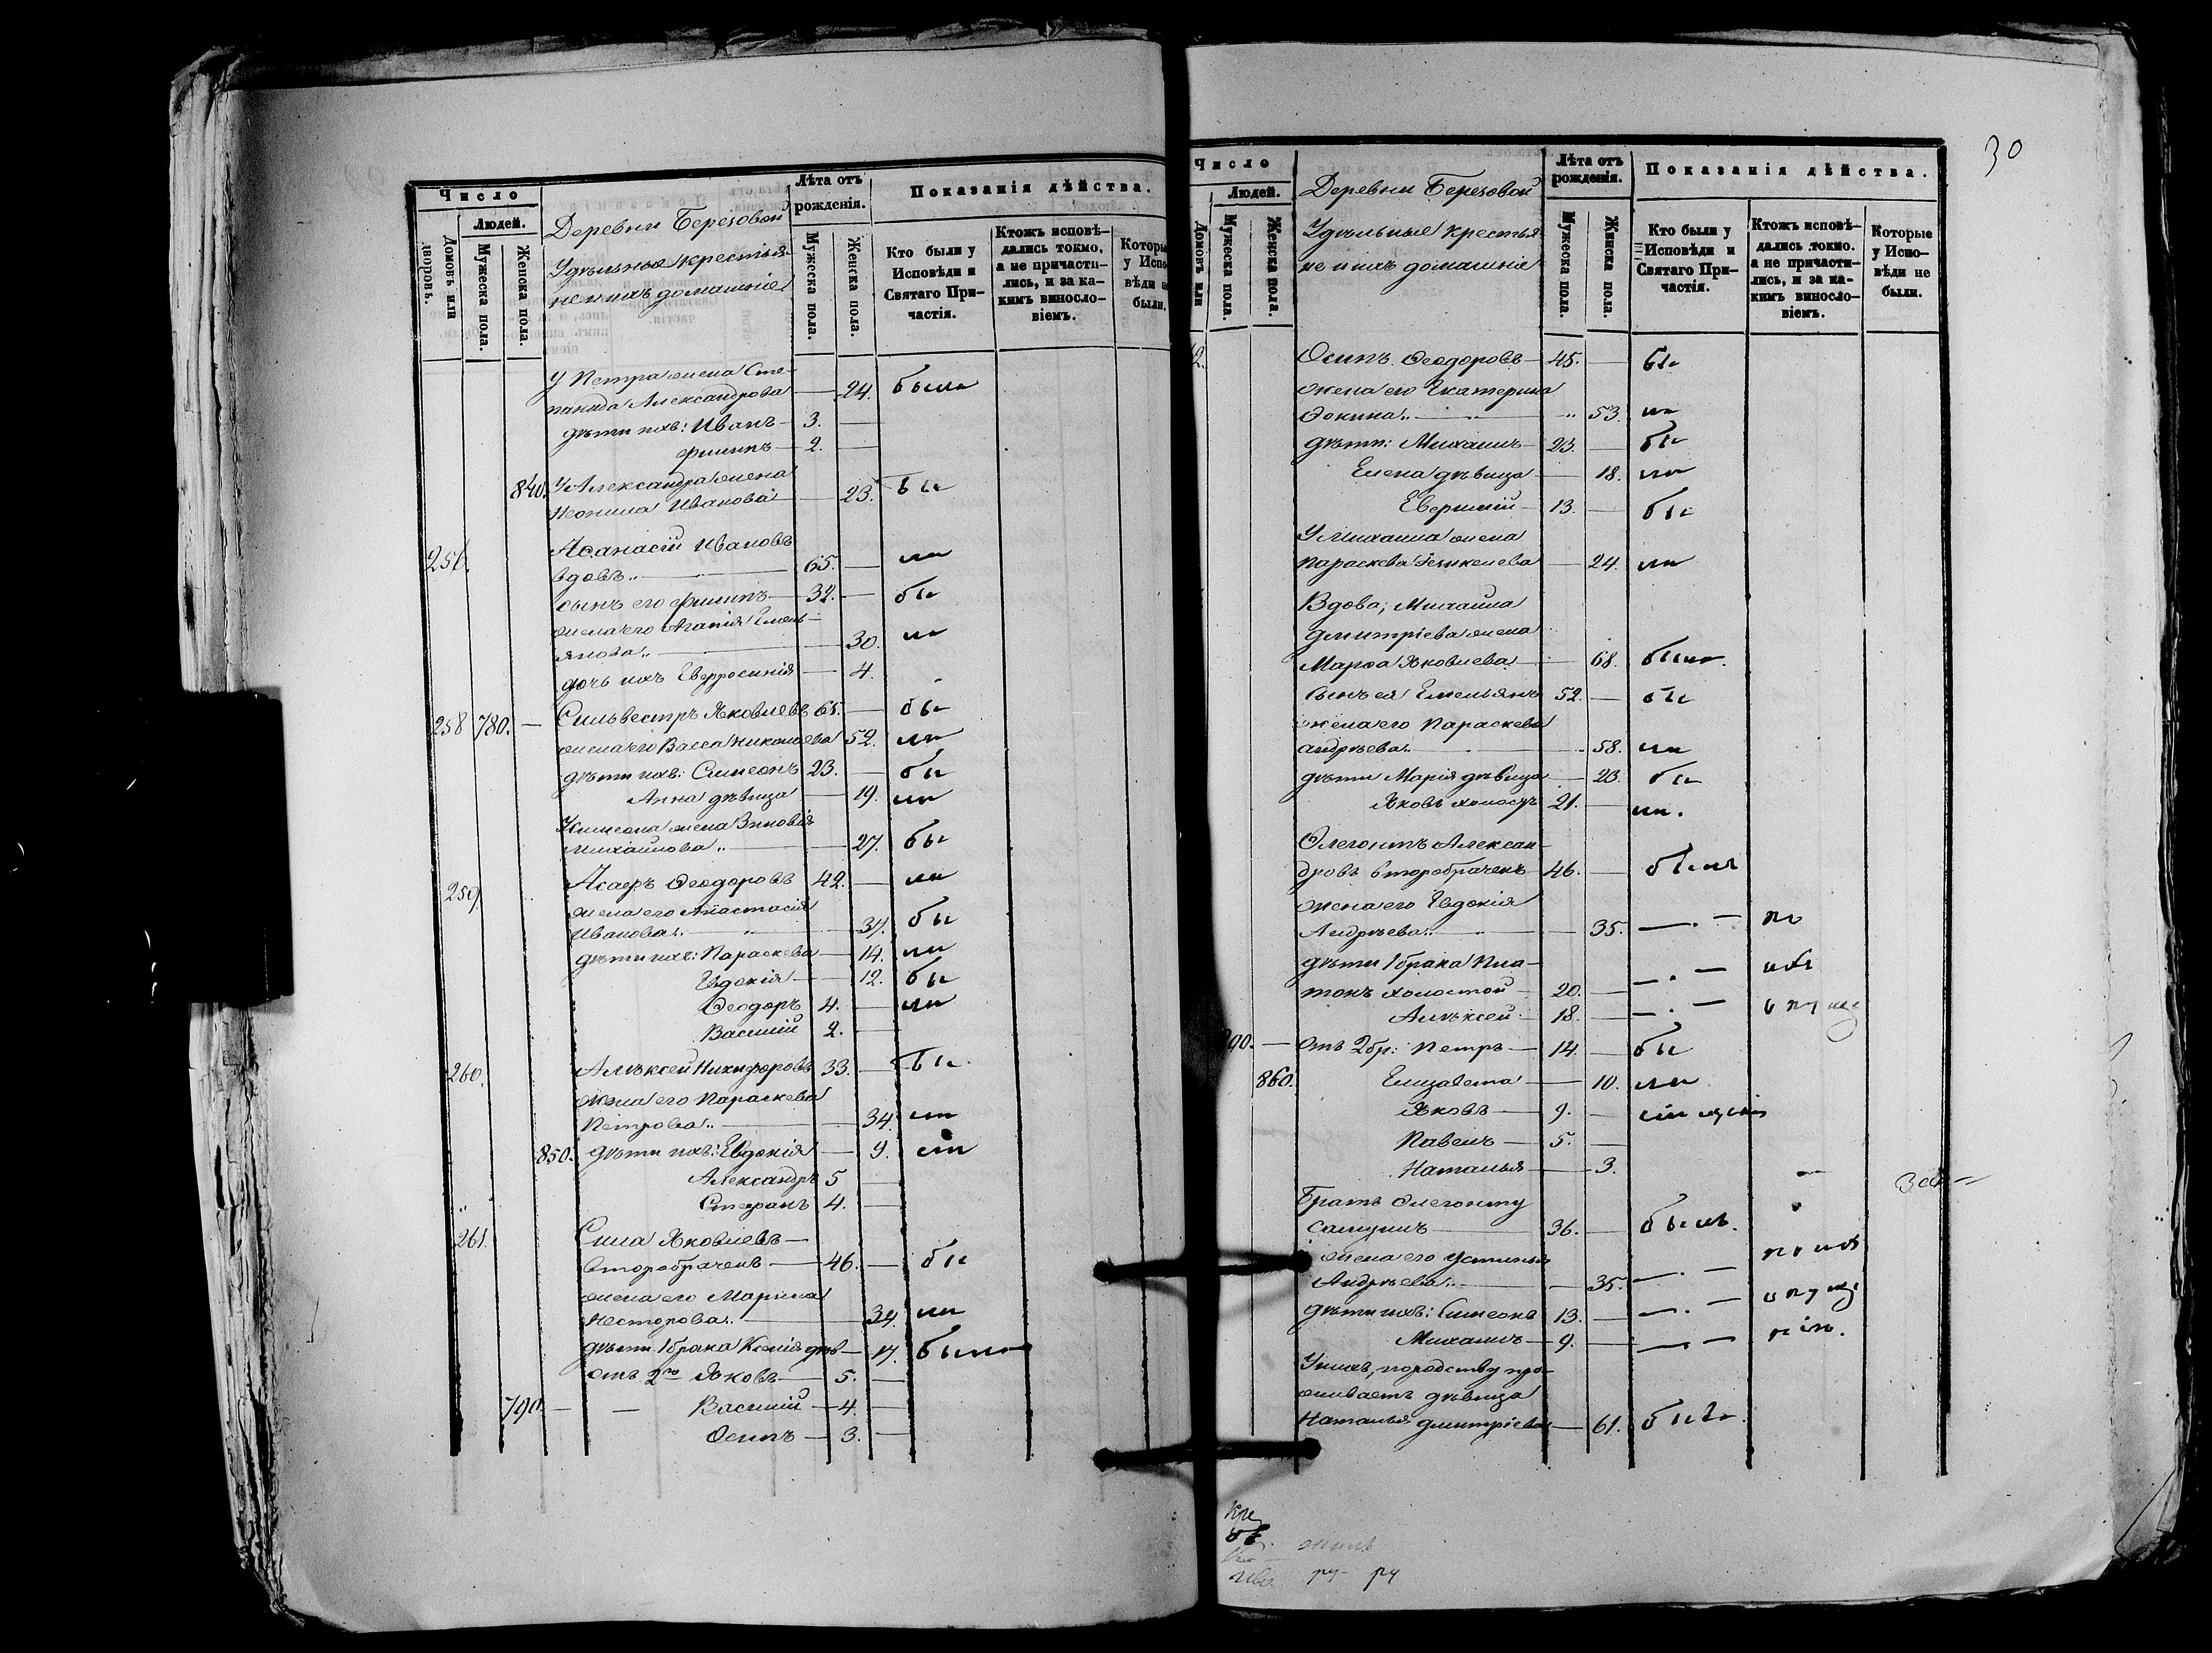 Число
Людей.
Домовъ или дворовъ.
Мужеска пола.
Женска пола.
Деревни Березовой
Удѣльные крестья-
не и ихъ домашніе
Лѣта отъ рожденія.
Мужеска пола.
Женска пола.
Показанія дѣйства.
Кто были у Исповѣди и Святаго При-частія.
Ктожъ исповѣ-дались токмо, а не причасти-лись, и за ка-кимъ винословіемъ.
Которы у Испо вѣди н были.
У Петра жена Сте-
панида Александрова — 24. была
дѣти ихъ: Иванъ — 3. —
Филипъ — 2. —
840. У Александра жена
Неонила Иванова — 23. бы
256. Аѳанасій Ивановъ
вдовъ — 65. — ли
сынъ его Филипъ — 32. — бы
жена его Агапія Емель-
янова — 30. ли
дочь ихъ Евфросинія — 4.
258 780. — Сильвестръ Яковлевъ 65. — бы
жена его Васса Николаева 52. ли
дѣти ихъ: Симеонъ 23. — бы
Анна дѣвица — 19. ли
У Симеона жена Зиновія
Михайлова — 27. бы
259. Асафъ Ѳеодоровъ 42. — ли
жена его Анастасія
Иванова — 37. бы
дѣти ихъ: Параскева — 14. ли
Евдокія — 12. бы
Ѳеодоръ 4. — ли
Василій 2. —
260. Алѣксей Никифоровъ 33. — бы
жена его Параскева
Петрова — 34. ли
850. дѣти ихъ: Евдокія — 9.
Александръ 5 —
Стефанъ 4. —
261. Сила Яковлевъ —
второбраченъ — 46. — бы
жена его Марина
Несторова — 34. ли
дѣти 1 брака Ксенія дѣв — 17. были
отъ 2го Яковъ — 5. —
790. — — Василій — 4. —
Осипъ — 3. —
30
Число
Людей.
Домовъ или
Мужеска пола.
Женска пола.
Деревни Березовой
Удѣльные крестья-
не и ихъ домашніе
Лѣта отъ рожденія.
Мужеска пола.
Жинска пола.
Показанія дѣйства.
Кто были у Исповѣди и Святаго При-частія.
Ктожъ исповѣ-дались токмо. а не причасти-лись, и за ка-кимъ винословіемъ.
Которые у Испо-вѣди не были.
2. Осипъ Ѳеодоровъ — 45. — бы
жена его Екатерина
Ѳокина — 53. ли
дѣти: Михаилъ — 23. — бы
Елена дѣвица — 18. ли
13. — бы
У Михаила жена
Параскева — 24. ли
Вдова, Михаила
Дмитріева жена
Марѳа Яковлева — 68. были.
сынъ ея Емельянъ 52. — бы
жена его Параскева
Андрѣева — 58. ли
дѣти Марія дѣвица — 23. бы
Яковъ холостъ 21. — ли.
Олегонтъ Алексан-
дровъ второбраченъ — 46. — былъ
жена его Евдокія
Андрѣева — 35. — . —
дѣти 1 брака Пла-
тонъ холостой — 20. — — . —
Алѣксей — 18. — — . —
90. — отъ 2 бр: Петръ — 14. — бы
860. Елизавета — 10. ли
Яковъ — 9. —
Павелъ — 5. —
Наталья — 3.
Братъ Олегонту
Самуилъ — 36. — былъ.
жена его Устинья
Андрѣева — 35. — . —
дѣти ихъ: Симеонъ 13. — — . —
Михаилъ — 9. — — . —
У нихъ, по родству про-
живаетъ дѣвица
Наталья Дмитріева — 61.